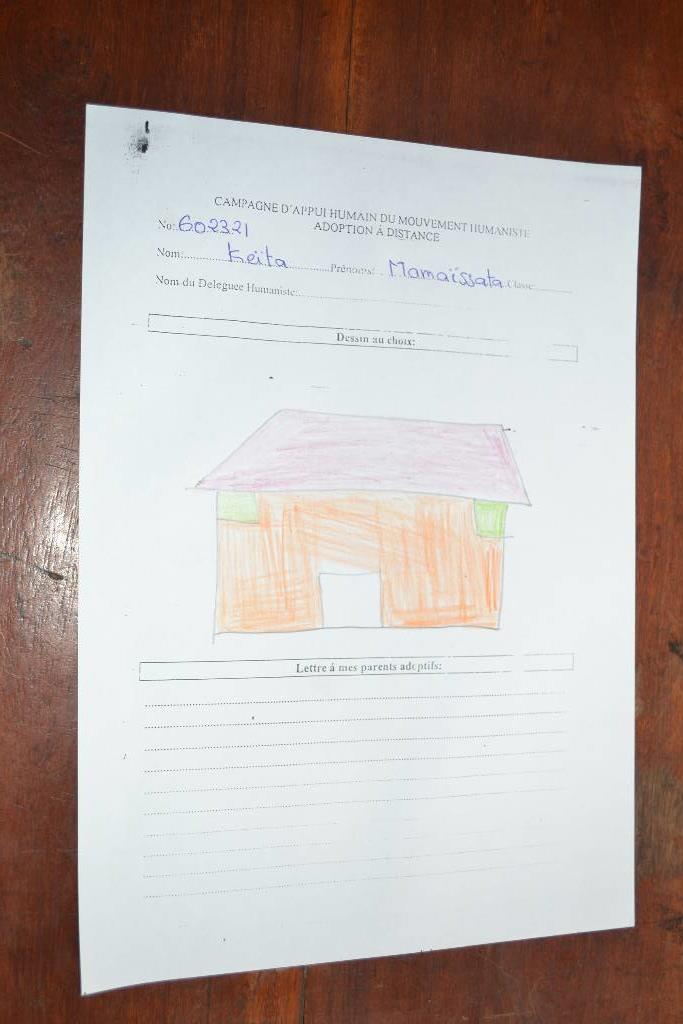 CAMPAGNE D'APPUI HUMAIN DU MOUVEMENT HUMANISTE
ADOPTION À DISTANCE
No: 602321
Nom:............Keïta............Prénoms: Mamaïssata Classe:............
Nom du Deleguee Humaniste:............
Dessin au choix:
Lettre á mes parents adoptifs: